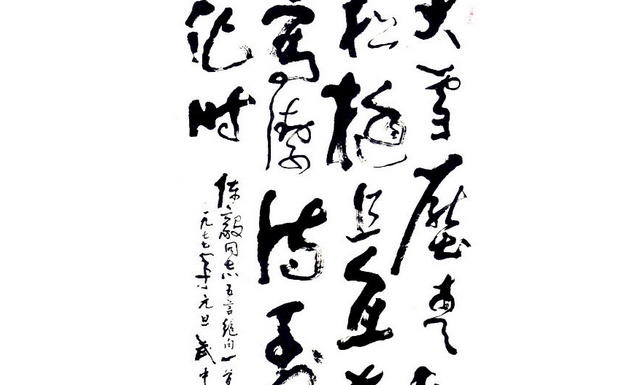 大雪壓青
松挺且直
高潔待到
化时
陈毅同志五言绝句一
一九七七年元旦 武中